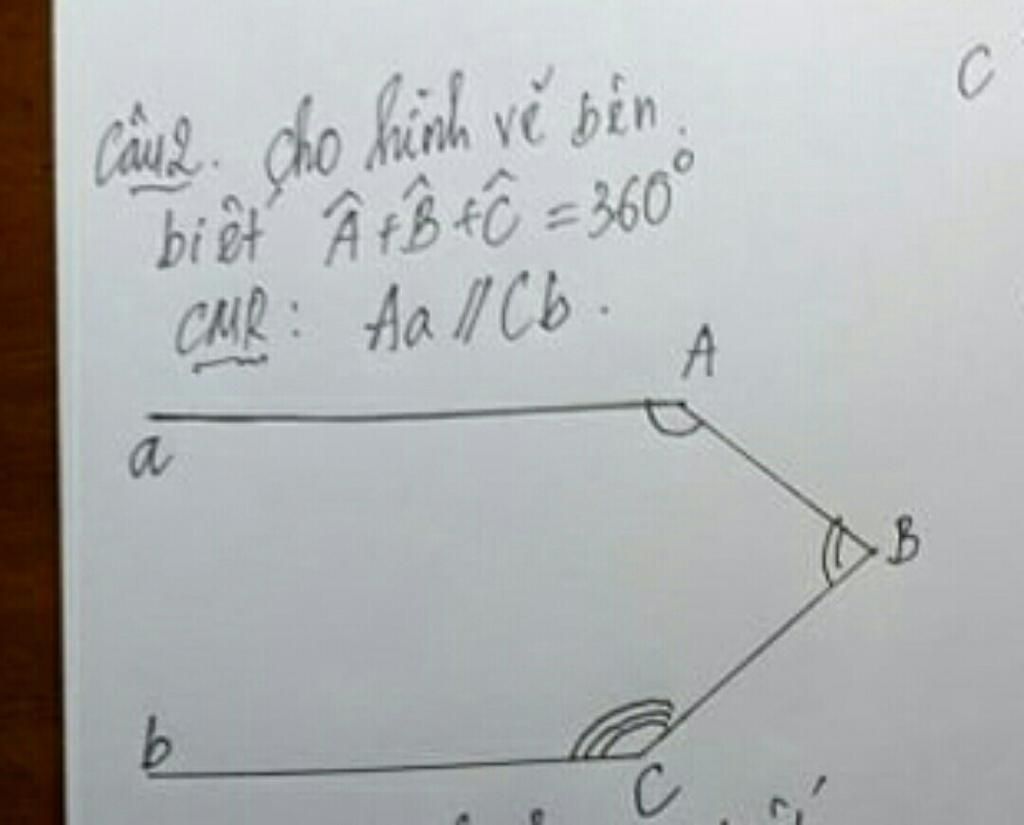 C
Câu2. Cho hình vẽ bên.
biết Â + B̂ + Ĉ = 360°
CMR: Aa // Cb.
A
a
B
b
C